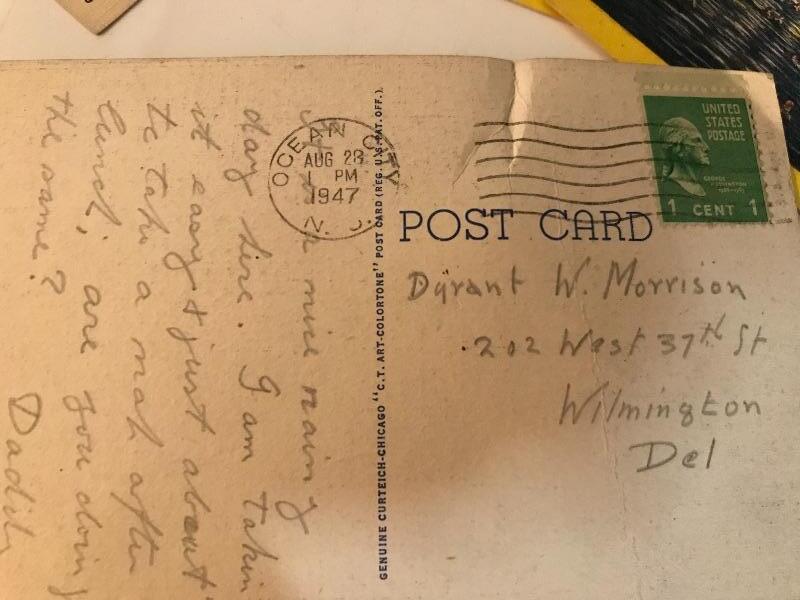 OCEAN CITY
AUG 28
1 PM
1947
N. J.
UNITED
STATES
POSTAGE
GEORGE
WASHINGTON
1 CENT 1
POST CARD
Dyrant W. Morrison
202 West 37th St
Wilmington
Del
GENUINE CURTEICH-CHICAGO "C.T. ART-COLORTONE" POST CARD (REG. U.S. PAT. OFF.)
a nice rainy
day here. I am takin
it easy & just about
to take a nap after
lunch, are you doing
the same?
Daddy